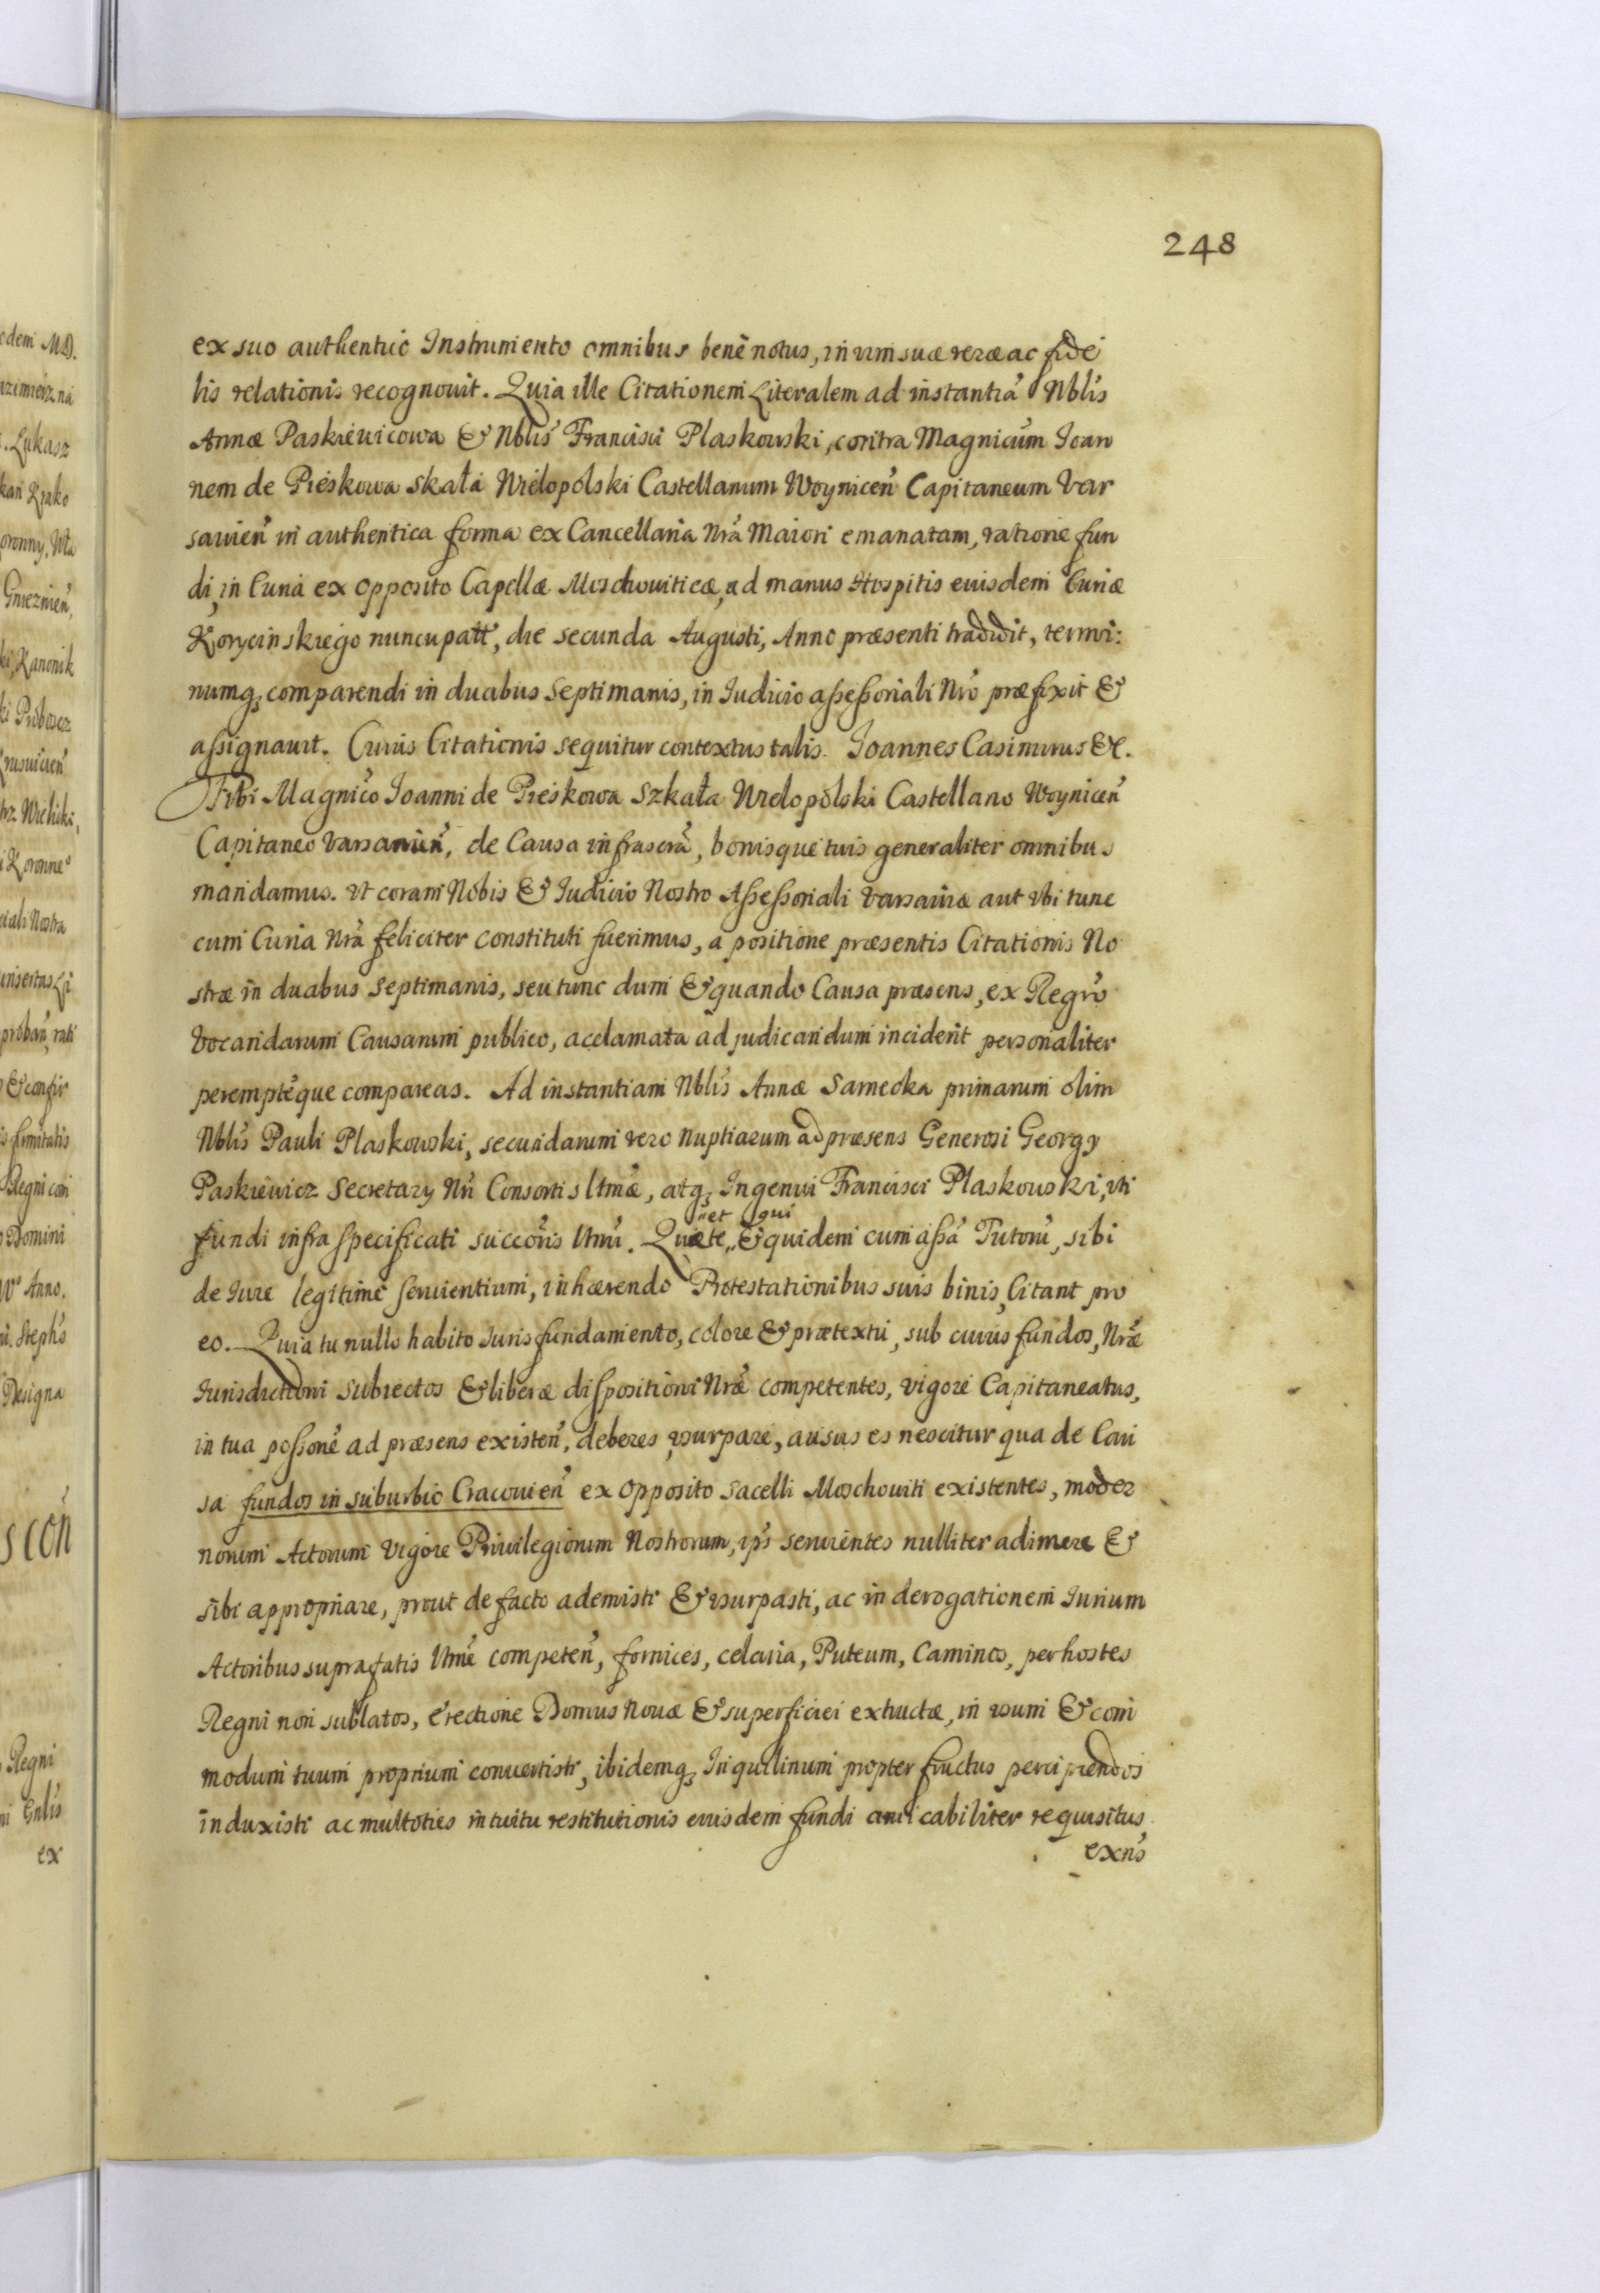 248
ex suo authentic Instrumento omnibus bene notus, in vim suæ veræ ac fide
lis relationis recognovit. Quia ille Citationem Literalem ad instantiã Nblis
Annæ Paskiewicowa & Nblis Francisci Plaskowski, contra Magnicum Joan
nem de Pieskowa Skała Wielopolski Castellanum Woynicen̉ Capitaneum Var
savien̉ in authentica forma ex Cancellaria Nrã Maiori emanatam, ratione fun
di, in Curia ex opposito Capellæ Moschouiticæ, ad manus Hospitis eiusdem Curiæ
Korycinskiego nuncupatt, die secunda Augusti, Anno præsenti tradidit, termi:
numq, comparendi in duabus Septimanis, in Iudicio aſseſsoriali Nrõ præfixit &
aſsignauit. Cuius Citationis sequitur contextus talis. Joannes Casimirus &c.
Tibi Magnico Joanni de Pieskowa Szkała Wielopolski Castellano Woynicen̉
Capitaneo Varsavien̉, de Causa infrascrã, bonisque tuis generaliter omnibus
mandamus. Vt coram Nobis & Iudicio Nostro Aſseſsoriali Varsaviæ aut Vbi tunc
cum Curia Nrã feliciter constituti fuerimus, a positione præsentis Citationis No
stræ in duabus Septimanis, seu tunc dum & quando Causa præsens, ex Regrõ
Vocandarum Causarum publico, acclamata ad judicandum inciderit personaliter
perempteque compareas. Ad instantiam Nblis Annæ Sarnecka primarum olim
Nblis Pauli Plaskowski, secundarum vero nuptiarum ad præsens Generosi Georgy
Paskiewicz Secretary Nri Consortis ltmæ, atq, Ingenui Francisci Plaskowski, vti
et qui
fundi infra specificati succoris ltmi. Qui ete, & quidem cum aſsã Tutorũ, sibi
de Iure legitime seruientium, inhærendo Protestationibus suis binis, Citant pro
eo. Quia tu nullo habito Iuris fundamento, colore & prætextu, sub cuius fundos, Nræ
Iurisdictioni subiectos & liberæ dispositioni Nræ competentes, vigore Capitaneatus,
in tua poſsone ad præsens existen̉, deberes vsurpare, ausus es nescitur qua de Cau
sa fundos in suburbio Cracovien̉ ex opposito Sacelli Moschouiti existentes, moder
norum Actorum Vigore Privilegiorum Nostrorum, ips servientes nulliter adimere &
sibi appropriare, prout de facto ademisti & vsurpasti, ac in derogationem Iurium
Actoribus suprafatis ltme competen̉, fornices, celaria, Puteum, Caminos, per hostes
Regni non sublatos, erectione Domus Novæ & superficiei extructæ, in vsum & com
modum tuum proprium convertisti, ibidemq, Inquilinum propter fructus percipiendos
induxisti ac multoties intuitu restitutionis eiusdem fundi amicabiliter requisitus
exñs